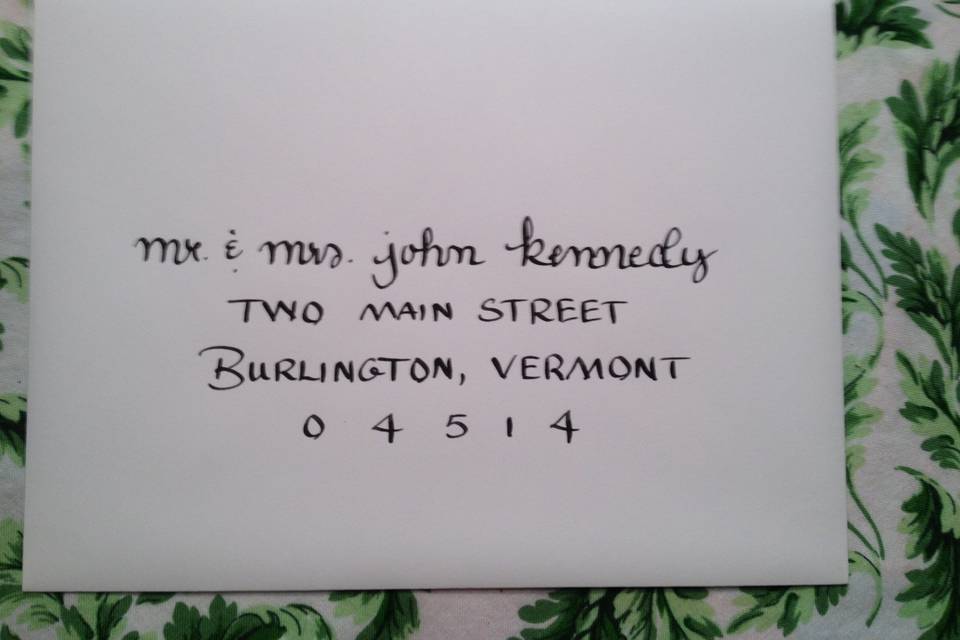 mr. & mrs. john kennedy
TWO MAIN STREET
BURLINGTON, VERMONT
0 4 5 1 4